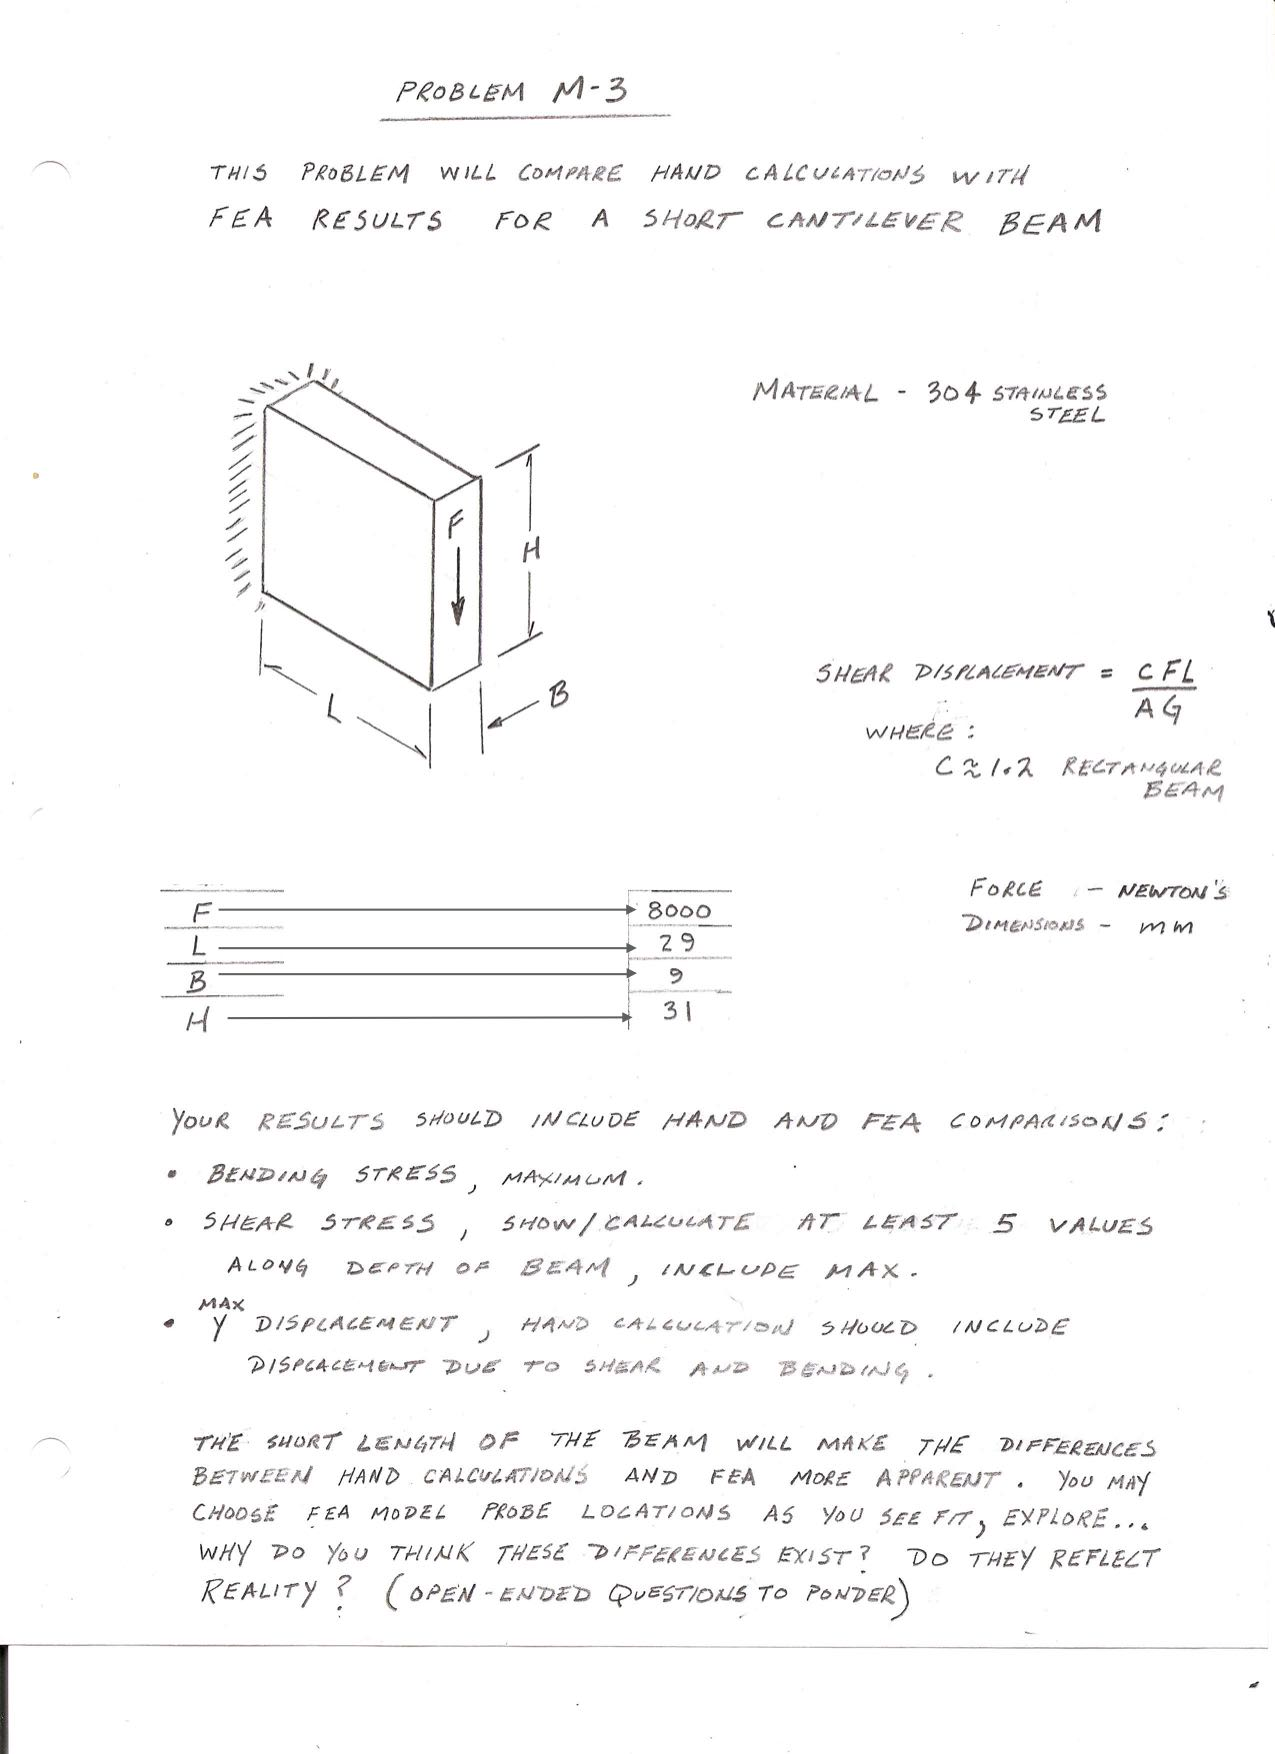 PROBLEM M-3
THIS PROBLEM WILL COMPARE HAND CALCULATIONS WITH
FEA RESULTS FOR A SHORT CANTILEVER BEAM
MATERIAL - 304 STAINLESS
STEEL
F
H
L
B
SHEAR DISPLACEMENT = CFL
AG
WHERE:
C ≈ 1.2 RECTANGULAR
BEAM
FORCE - NEWTON'S
DIMENSIONS - mm
F 8000
L 29
B 9
H 31
YOUR RESULTS SHOULD INCLUDE HAND AND FEA COMPARISONS:
• BENDING STRESS, MAXIMUM.
• SHEAR STRESS, SHOW/CALCULATE AT LEAST 5 VALUES
ALONG DEPTH OF BEAM, INCLUDE MAX.
MAX
• Y DISPLACEMENT, HAND CALCULATION SHOULD INCLUDE
DISPLACEMENT DUE TO SHEAR AND BENDING.
THE SHORT LENGTH OF THE BEAM WILL MAKE THE DIFFERENCES
BETWEEN HAND CALCULATIONS AND FEA MORE APPARENT. YOU MAY
CHOOSE FEA MODEL PROBE LOCATIONS AS YOU SEE FIT, EXPLORE...
WHY DO YOU THINK THESE DIFFERENCES EXIST? DO THEY REFLECT
REALITY? (OPEN-ENDED QUESTIONS TO PONDER)